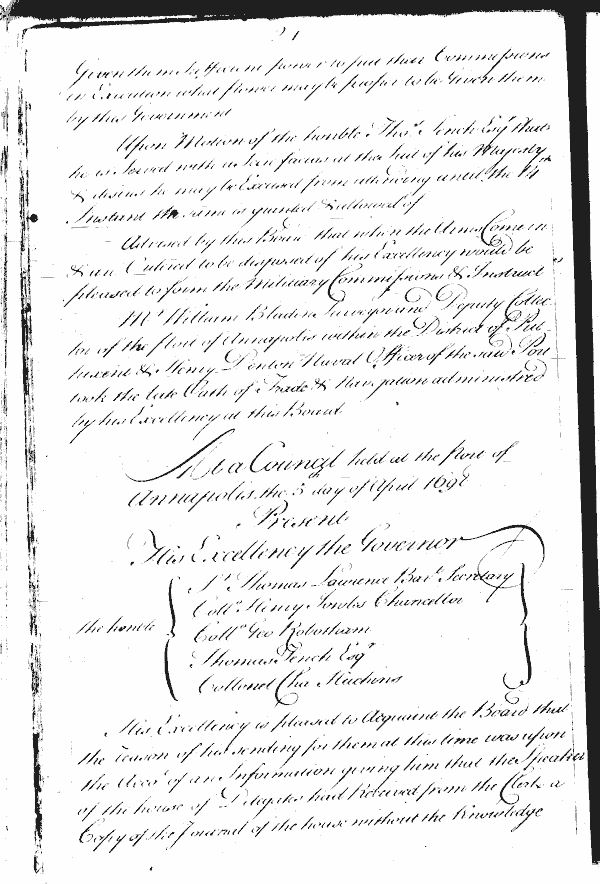 21
Given them sufficient power to put their Commissions
in Execution what flower may be proper to be Given them
by this Government
Upon Motion of the honble Thos. Tench Esqr. that
he is Seized with a Sore & desires he may be Excused from attending until the 14th
Instant the same is granted & allowed of
Advised by this Board that when the Arms Come in
& are Ordered to be disposed of his Excellency would be
pleased to form the Military Commissions & Instructns
Mr. William Bladen Surveyor and Deputy Collec
tor of the Port of Annapolis within the District of Pat
tuxent & Henry Denton Naval Officer of the said Port
took the late Oath of Trade & Navigation administred
by his Excellency at this Board
At a Councyl held at the Port of
Annapolis the 5 day of April 1698
Present
His Excellency the Governor
the honble
Sr. Thomas Lawrence Bart. Secretary
Colln. Henry Jowles Chancellor
Colln. Geo Robotham
Thomas Tench Esqr.
Collonel Cha Hutchins
His Excellency is pleased to Acquaint the Board that
the reason of his sending for them at this time was upon
the Accot. of an Information giving him that the Speaker
of the house of Delegates had Received from the Clerk a
Copy of the Journal of the house without the Knowledge